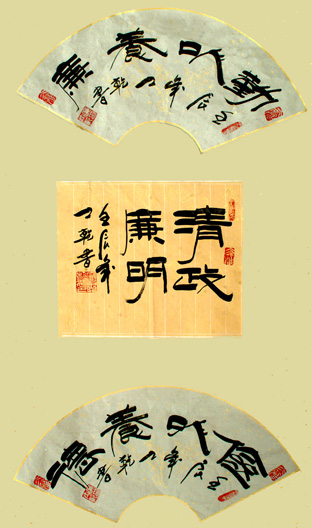 勤以養廉
壬辰年丁乾書
清政
廉明
壬辰年
丁乾書
儉以養德
壬辰年丁乾書